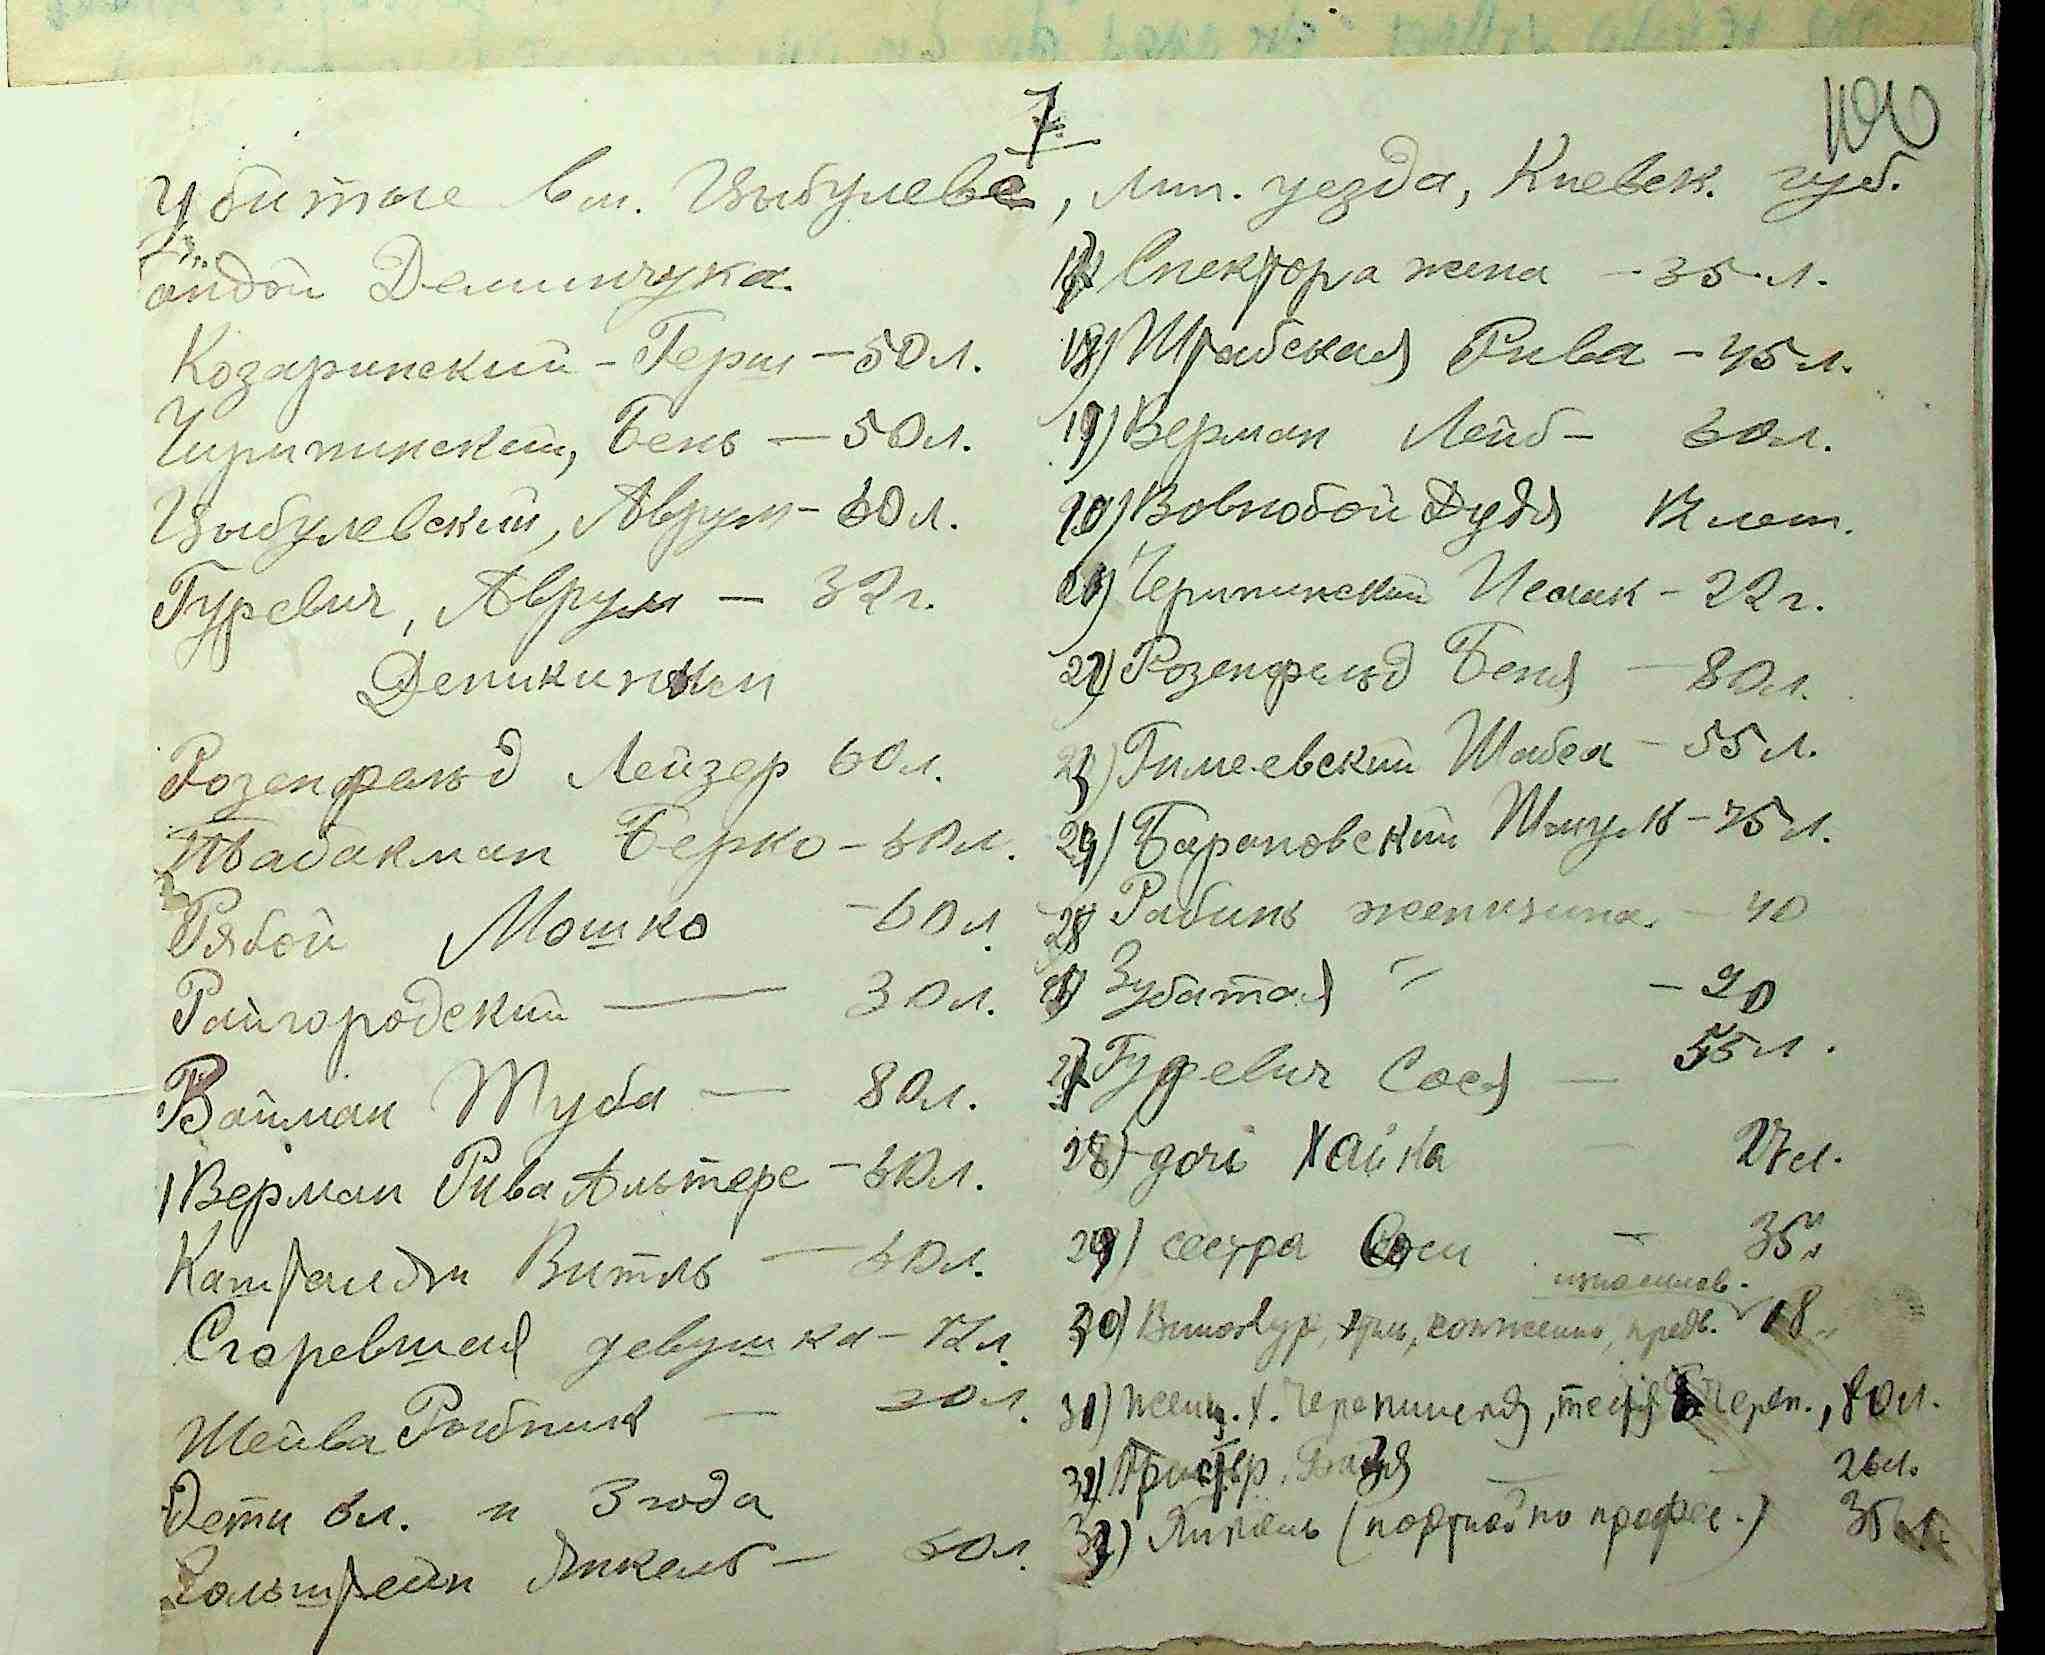 7
100
Убитые в м. Цыбулеве, Лип. уезда, Киевск. губ.
андой Деминчука.
Козаринский - Герш - 50 л.
Чирпинский, Бень - 50 л.
Цыбулевский, Аврум - 60 л.
Гуревич, Аврум - 32 г.
Деникинцами
Розенфельд Лейзер 60 л.
Табакман Берко - 60 л.
Рябой Мошко - 60 л.
Райгородский — 30 л.
Вайман Туба — 80 л.
Верман Рива Альтере - 60 л.
Витль — 60 л.
Сгоревшая девушка - 12 л.
Шейва Рыбник — 20 л.
Дети 6 л. и 3 года
Гольштейн Янкель - 60 л.
17) Спектора жена - 35 л.
18) Штабская Рива - 45 л.
19) Верман Лейб - 60 л.
20) Вовнобой Дудя 12 лет.
21) Черпинский Исаак - 22 г.
22) Розенфельд Беня - 80 л.
23) Гимеевский Шабса - 55 л.
24) Барановский Шмуль - 75 л.
25) Рабинь женщина. - 40
26) Зубатая " - 20
27) Гуревич Сося — 55 л.
28) дочь Хайка - 27 л.
29) сестра Соси - 35 л.
изнасилов.
30) Винокур, сожжены, предв. 18
31) женщ. Х. Черепинская, Череп., 80 л.
32) — 26 л.
33) (портной по профес.) 35 л.